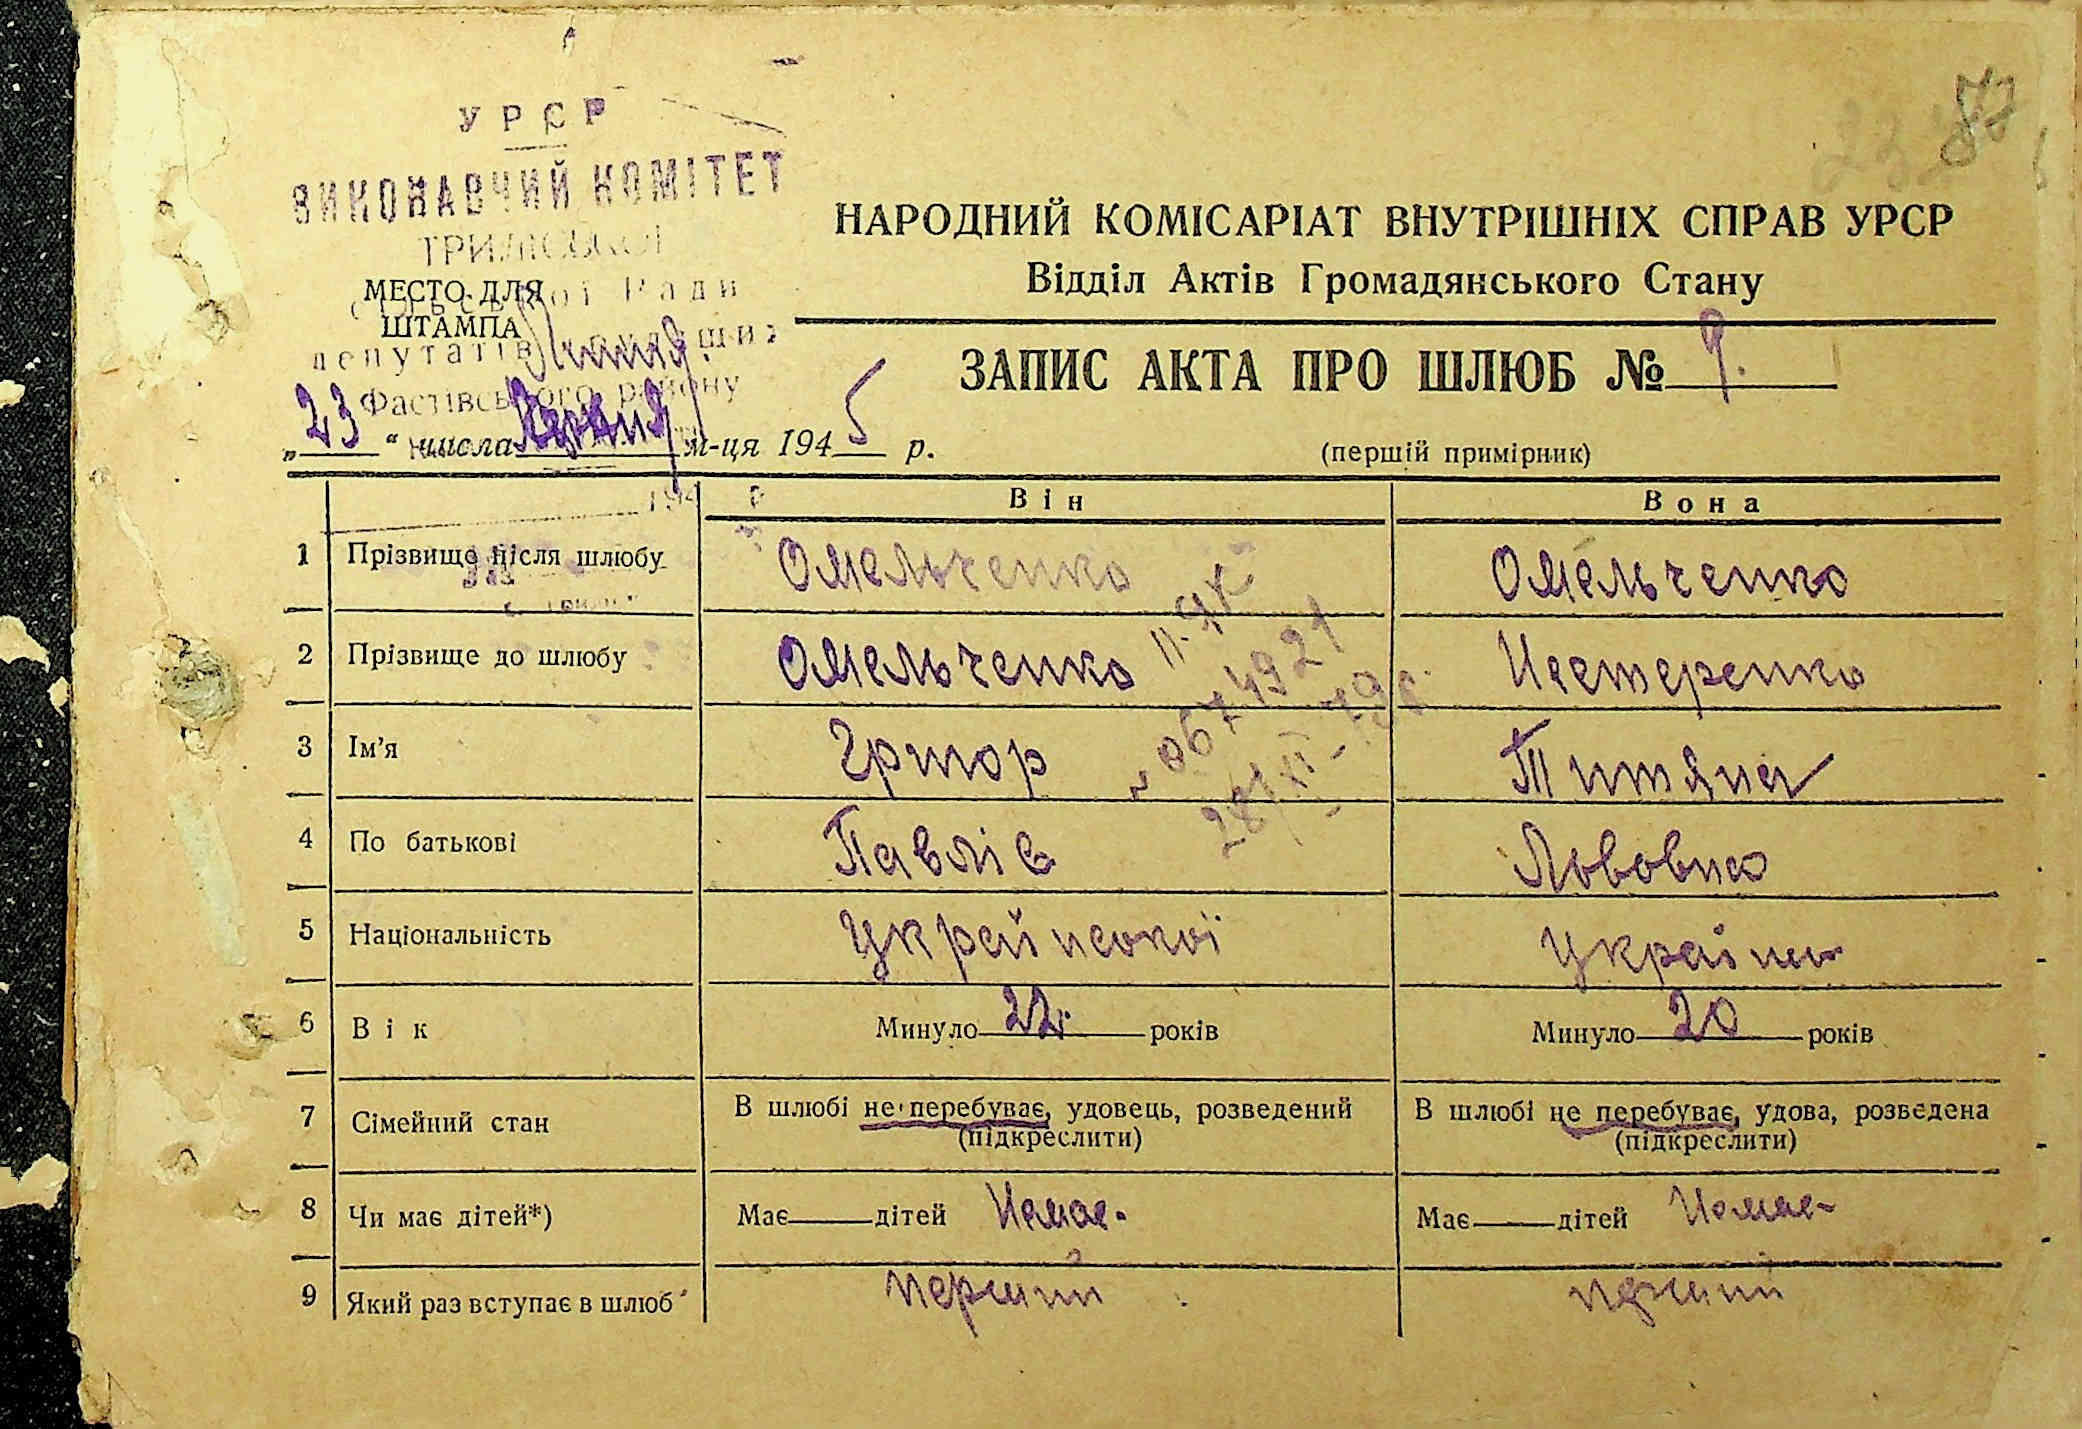 УРСР
ВИКОНАВЧИЙ КОМІТЕТ
ТРИЛІСЬКОЇ
сільської Ради
депутатів трудящих
Фастівського району
МЕСТО ДЛЯ
ШТАМПА
НАРОДНИЙ КОМІСАРІАТ ВНУТРІШНІХ СПРАВ УРСР
Відділ Актів Громадянського Стану
ЗАПИС АКТА ПРО ШЛЮБ № 9.
„23“ числа м-ця 1945 р.
(перший примірник)
194 р
Він Вона
1 Прізвище після шлюбу Омельченко Омельченко
2 Прізвище до шлюбу Омельченко Нестеренко
3 Ім'я Григор Титяна
4 По батькові Павлів Львовна
5 Національність Украйнської Україна
6 Вік Минуло 22. років Минуло 20 років
7 Сімейний стан В шлюбі не перебуває, удовець, розведений В шлюбі не перебуває, удова, розведена
(підкреслити) (підкреслити)
8 Чи має дітей*) Має дітей Немає. Має дітей Немає
9 Який раз вступає в шлюб перший перший
II-ЯК
№ 0674921
28/XI-79р.